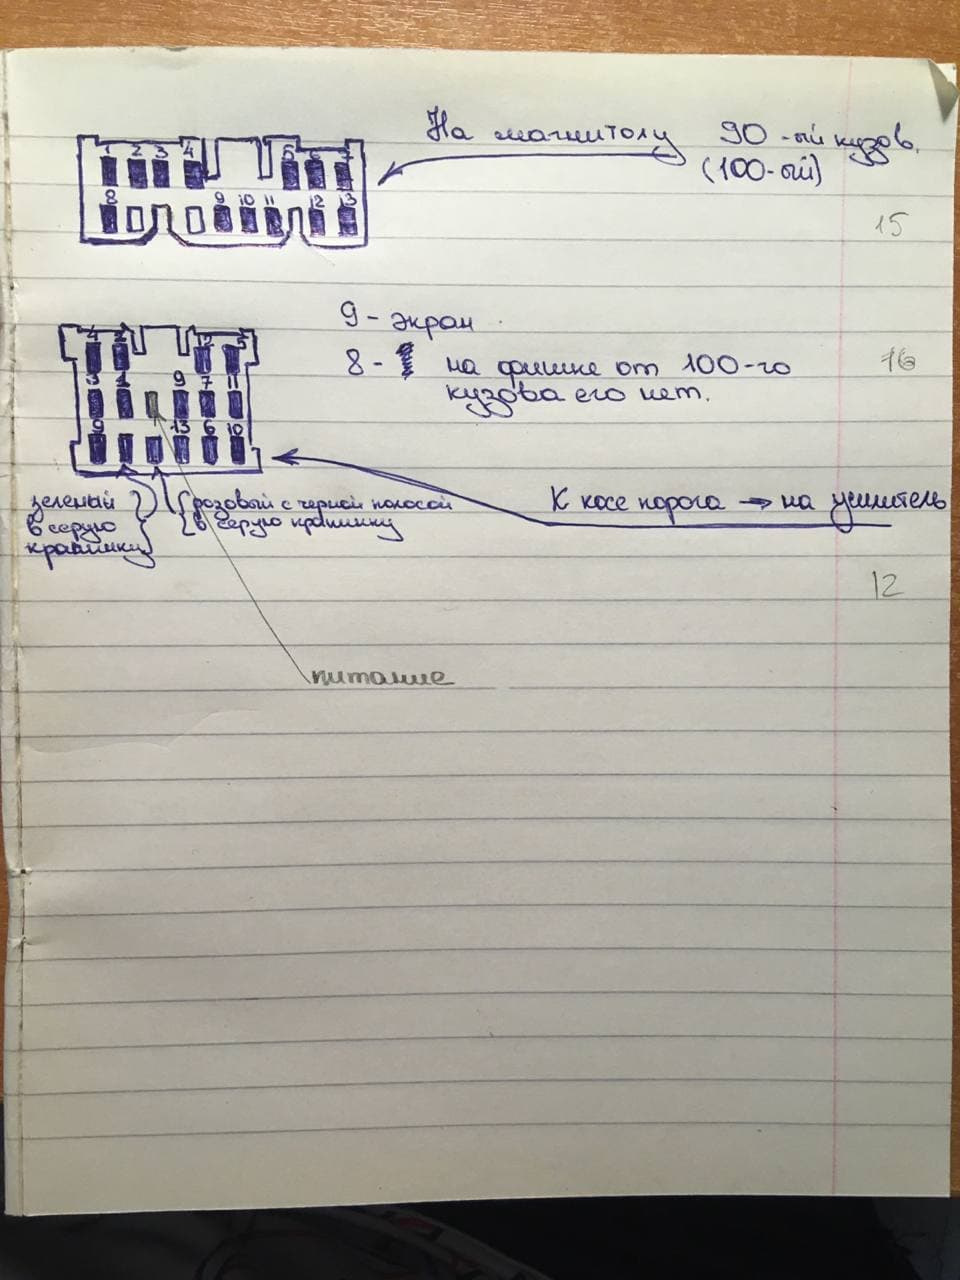 На магнитолу 90-ый кузов.
(100-ый)
1 2 3 4 5 6 7
8 9 10 11 12 13
15
9 - экран
8 - на фишке от 100-го
кузова его нет.
16
4 2 12 5
3 1 9 7 11
9 13 6 10
зеленый
в серую
крапинку
розовый с черной полосой
в серую крапинку
К косе порога → на усилитель
12
питание